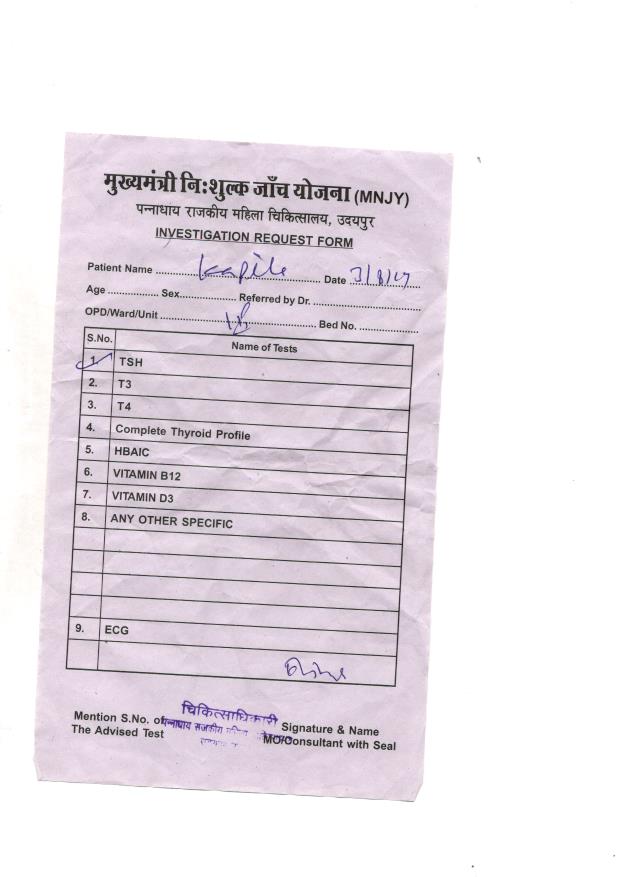 मुख्यमंत्री निःशुल्क जाँच योजना (MNJY)
पन्नाधाय राजकीय महिला चिकित्सालय, उदयपुर
INVESTIGATION REQUEST FORM
Patient Name ........ Date ........
Age ........ Sex........ Referred by Dr. ........
OPD/Ward/Unit ........ Bed No. ........
S.No. Name of Tests
1. TSH
2. T3
3. T4
4. Complete Thyroid Profile
5. HBAIC
6. VITAMIN B12
7. VITAMIN D3
8. ANY OTHER SPECIFIC
9. ECG
चिकित्साधिकारी
पन्नाधाय राजकीय
Mention S.No. of Signature & Name
The Advised Test MO/Consultant with Seal